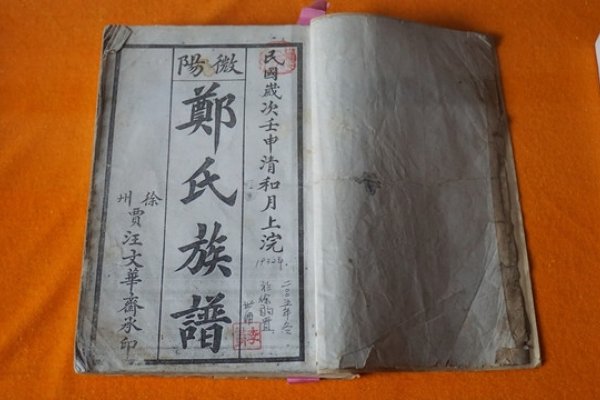 民國歲次壬申清和月上浣
1932年.
微陽
鄭氏族譜
徐州
賈汪文華齋承印